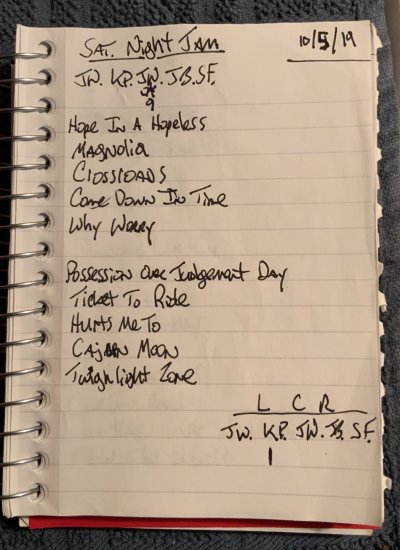 SAT. Night JAM
10/5/19
JW. KP. JW. JB. SF.
9
Hope In A Hopeless
Magnolia
Crossroads
Come Down In Time
Why Worry
Possession Over Judgement Day
Ticket To Ride
Hurts Me To
Cajun Moon
Twighlight Zone
L C R
JW. KP. JW. JB. SF.
1